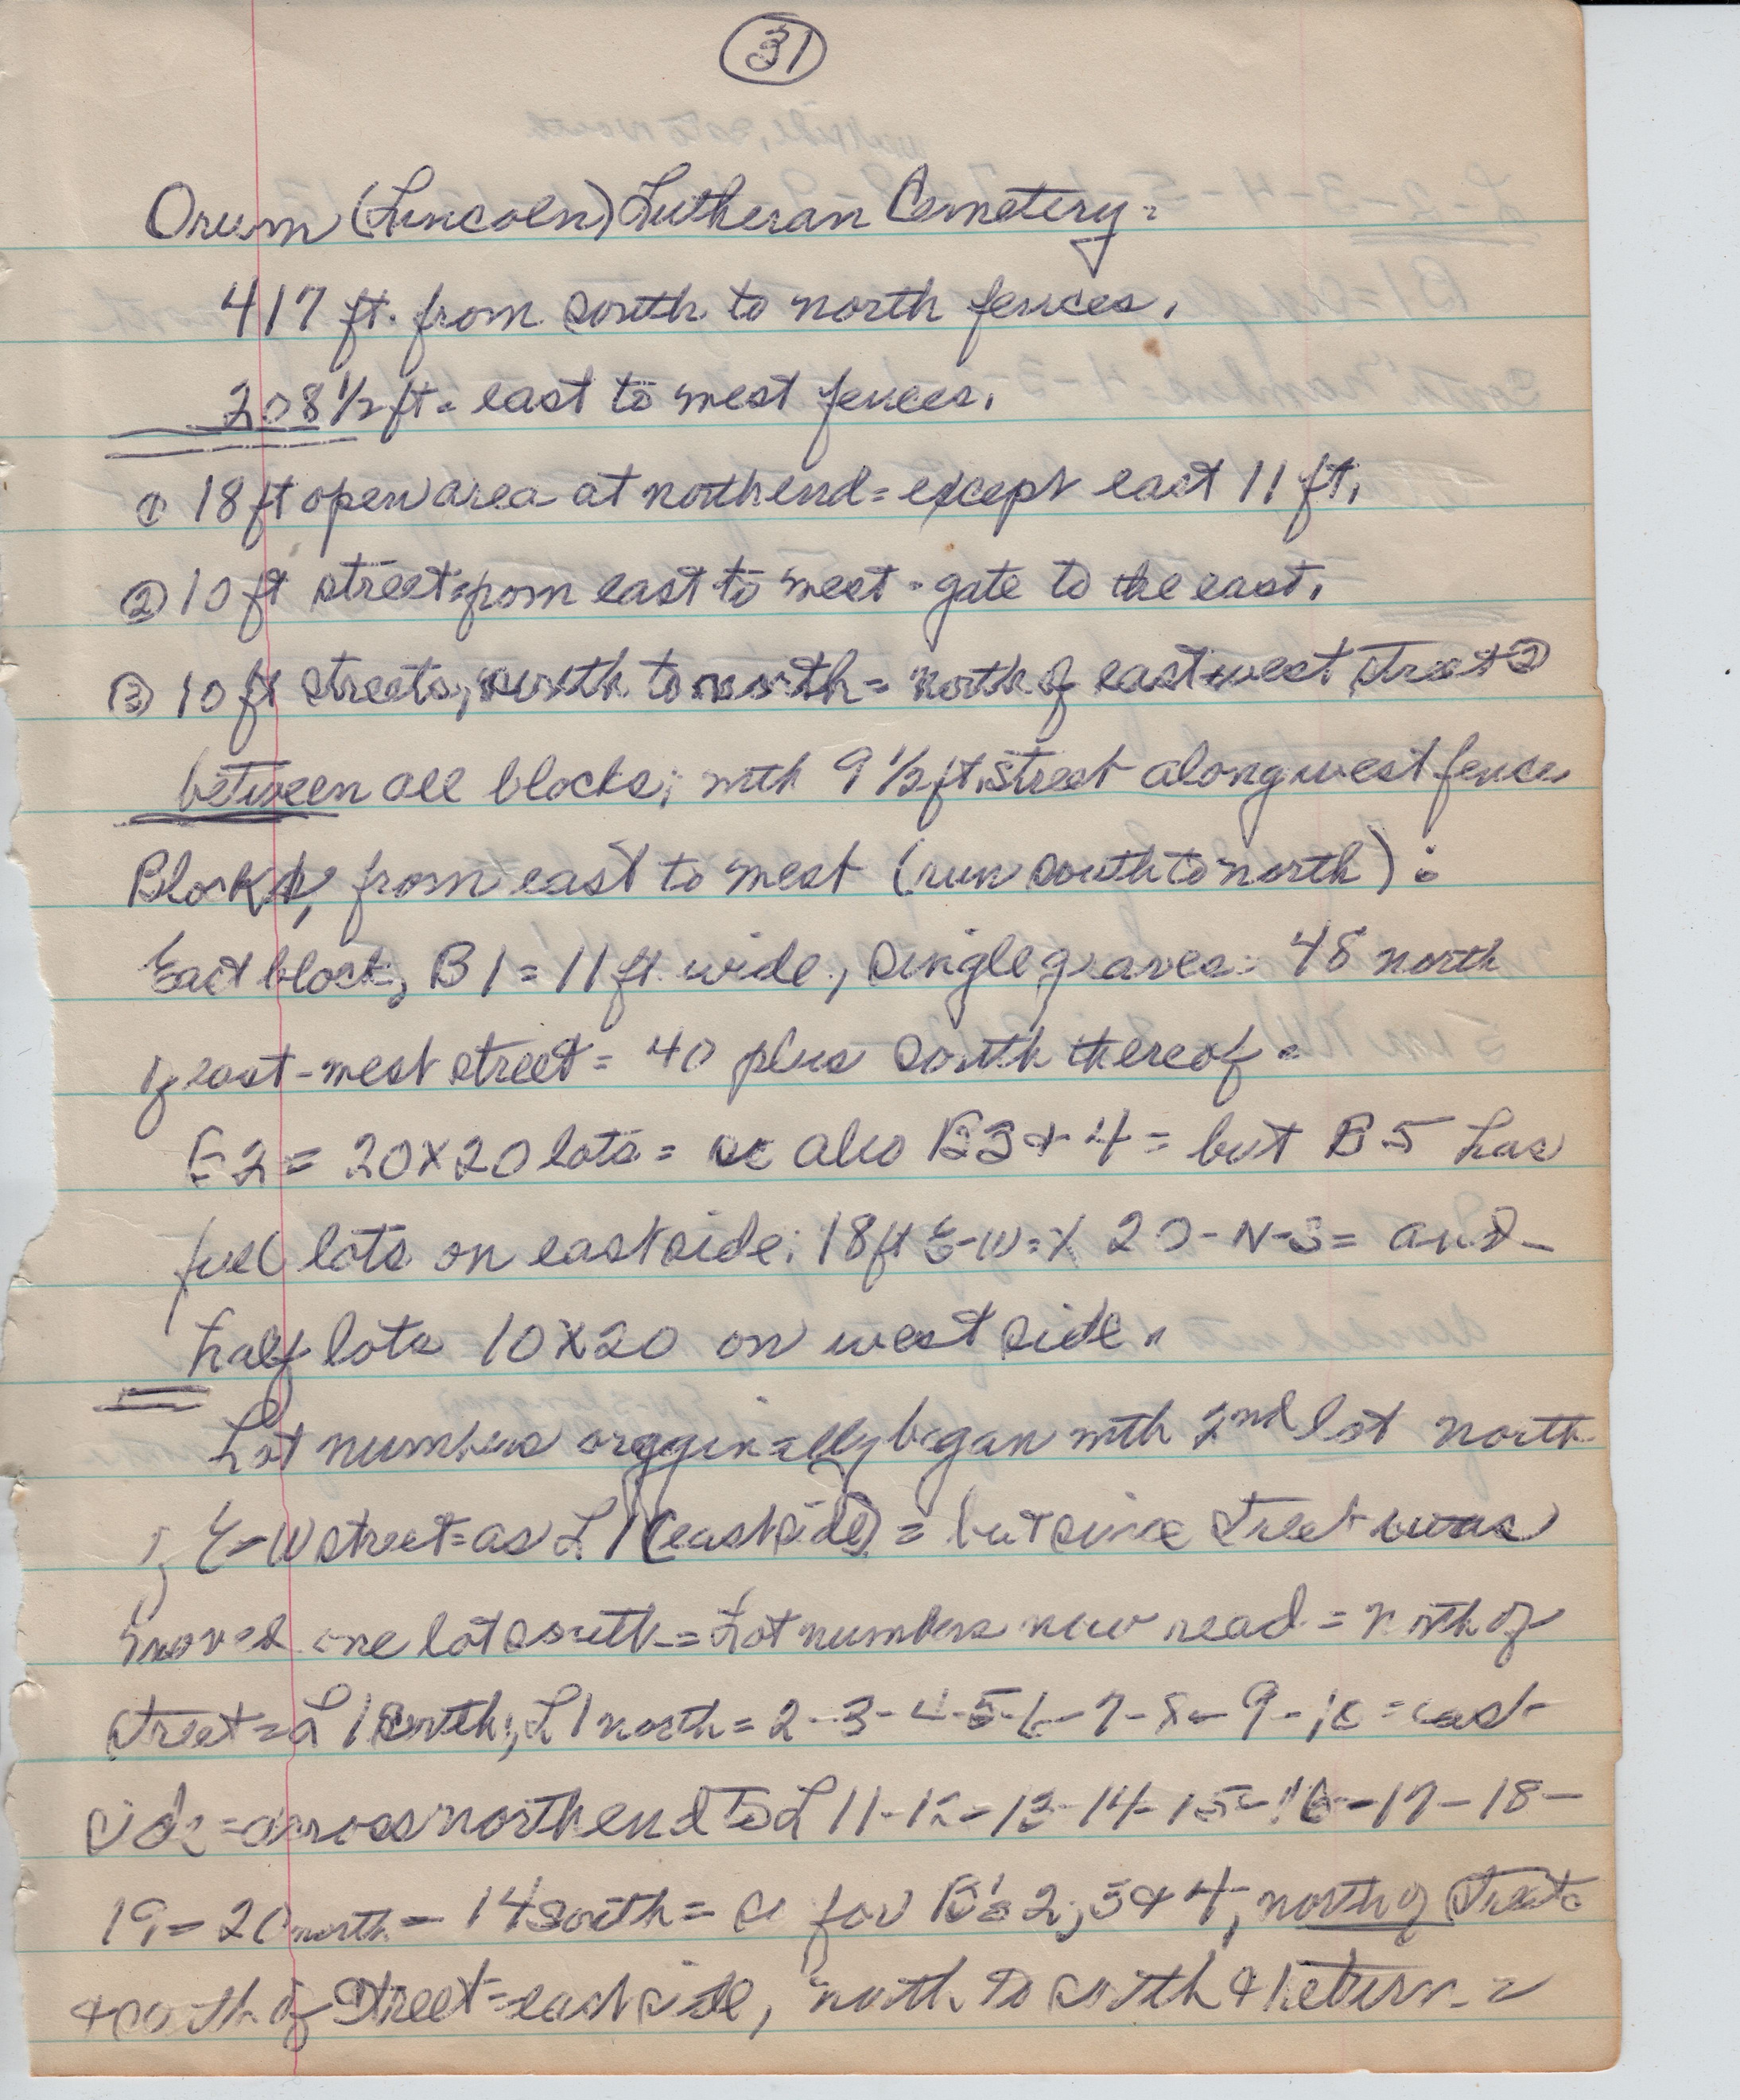 31
Orum (Lincoln) Lutheran Cemetery =
417 ft. from south to north fences.
208 1/2 ft. east to west fences.
① 18 ft open area at north end = except east 11 ft.
② 10 ft street = from east to west - gate to the east.
③ 10 ft streets, south to north = north of east-west street ②
between all blocks; with 9 1/2 ft. street along west fence
Blocks, from east to west (run south to north) :
East block, B1 = 11 ft. wide, single graves: 48 north
of east-west street = 40 plus south thereof =
B2 = 20 x 20 lots = so also B3 & 4 = but B 5 has
full lots on east side; 18 ft E-W = X 20 - N-S = and -
half lots 10 X 20 on west side.
Lot numbers origginally began with 2nd lot north
of E-W street = as L 1 (east side) = but since street was
moved one lot south = Lot numbers now read = north of
street = L 1 South; L 1 north = 2 - 3 - 4 - 5 - 6 - 7 - 8 - 9 - 10 = east
side = across north end to L 11 - 12 - 13 - 14 - 15 - 16 - 17 - 18 -
19 - 20 north - 14 South = so for B's 2, 3 & 4, north of street
& south of street = east side, north to south & return =